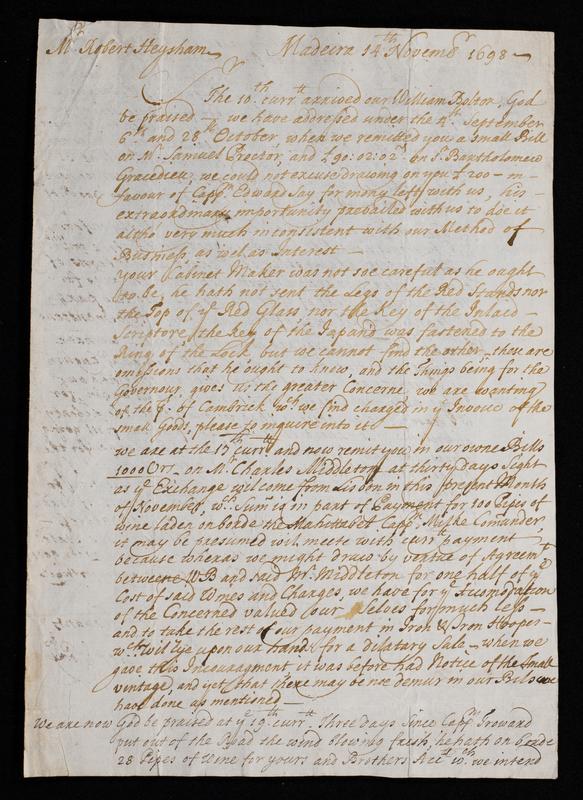 Sr
Mr Robert Heysham Madeira 14th Novembr 1698
The 10th currtt arrived our William Bolton, God
be praised – we have addressed under the 4th September
6th and 28th October when we remitted you a small Bill
on Mr Samuel Proctor, and £90:02:02d on S. Bartholomew
Gracedieu, we could not excuse drawing on you £ 200 – in
favour of Cappn Edward Say for mony left with us, his
extraordinary importunity prevailed with us to doe it
altho very much inconsistent with our Method of
Business, as wel as Interest –
Your Cabinet Maker was not soe carefull as he ought
to be, he hath not sent the Legs of the Red Stands nor
the Top of ye Red Glass, nor the Key of the Inlaid
Scriptore, the Key of the Japand was fastened to the
Ring of the Lock, but we cannot find the other, these are
omissions that he ought to know, and the Things being for the
Governour gives us the greater Concerne, we are wanting
of the ps. of Cambrick wch we find charged in ye Invoice of the
small Goods, please to inquire into it –
we are at the 15th currtt and now remit you in our owne Bills
1000 on Mr Charles Middleton at thirty days Sight
as ye Exchange wil come from Lisbon in this present Month
of November, wch Sum is in part of Payment for 100 Pipes of
wine laden on borde the Mahittabel Cappn Comander
it may be presumed wil meete with currtt payment
because wheras we might draw by vertue of Agreemt
betweene WB and said Mr Middleton for one half of ye
Cost of said Wines and Charges, we have for ye Accomodation
of the Concerned valued our Selves for much less –
and to take the rest of our payment in Iron & Iron Hoops
wch wil lye upon our hands for a dilatary Sale – when we
gave this Incouragment it was before had Notice of the small
vintage, and yet, that there may be noe demur in our Bils we
have done as mentioned –
We are now God be praised at ye 19th currtt Three days Since Cappn Froward
put out of the Road the wind blowing fresh, he hath on borde
28 Pipes of Wine for yours and Brothers Acct wch we intend